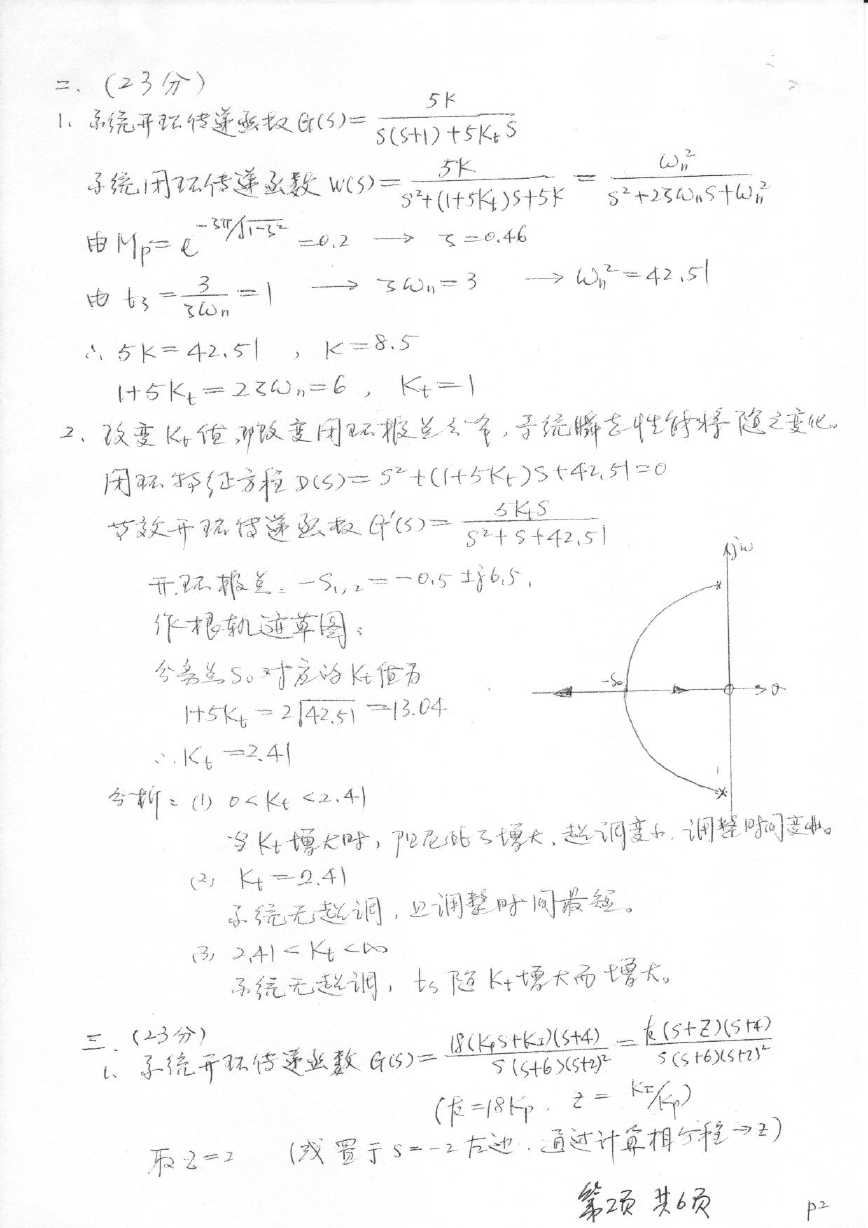 二. (23分)
1. 系统开环传递函数 G(s)= 5K / (S(S+1)+5KtS)
系统闭环传递函数 W(s)= 5K / (S²+(1+5Kt)S+5K) = ωn² / (S²+2ζωnS+ωn²)
由 Mp = e^(-ζπ/√(1-ζ²)) =0.2 → ζ=0.46
由 ts = 3/(ζωn) =1 → ζωn=3 → ωn²=42.51
∴ 5K=42.51 , K=8.5
1+5Kt=2ζωn=6 , Kt=1
2、改变Kt值,即改变闭环极点分布,系统瞬态性能将随之变化。
闭环特征方程 D(S)= S²+(1+5Kt)S+42.51=0
等效开环传递函数 G'(s)= 5KtS / (S²+S+42.51)
开环极点: -S1,2=-0.5±j6.5,
作根轨迹草图:
jω
分离点S0对应的Kt值为
-S0 0 σ
1+5Kt=2√42.51=13.04
∴ Kt=2.41
分析: (1) 0<Kt<2.41
当Kt增大时, 阻尼比ζ增大, 超调变小, 调整时间变小。
(2) Kt=2.41
系统无超调, 且调整时间最短。
(3) 2.41<Kt<∞
系统无超调, ts随Kt增大而增大。
三. (23分)
1、系统开环传递函数 G(s)= 18(KpS+KI)(S+4) / (S(S+6)(S+2)²) = k(S+Z)(S+4) / (S(S+6)(S+2)²)
(k=18Kp, z= KI/Kp)
取z=2 (或置于S=-2左边, 通过计算相方程→z)
第2页 共6页 p2